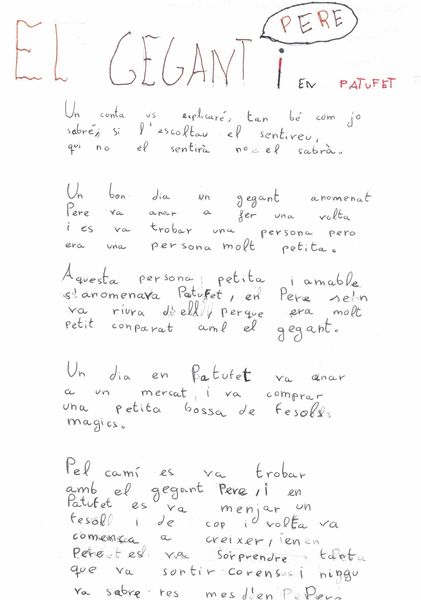 PERE
EL GEGANT i EN PATUFET
Un conta us explicaré, tan bé com jo
sabré, si l'escoltau el sentireu,
qui no el sentirà no el sabrà.
Un bon dia un gegant anomenat
Pere va anar a fer una volta
i es va trobar una persona pero
era una persona molt petita.
Aquesta persona petita i amable
s'anomenava Patufet, en Pere se'n
va riura d'ell, perque era molt
petit conparat amb el gegant.
Un dia en Patufet va anar
a un mercat i va comprar
una petita bossa de fesols
magics.
Pel camí es va trobar
amb el gegant Pere, i en
Patufet es va menjar un
fesoll i de cop i volta va
comença a creixer, i en
Pere es va sorprendre tant
que va sortir corens i ningu
va sabre res mes d'en Pere